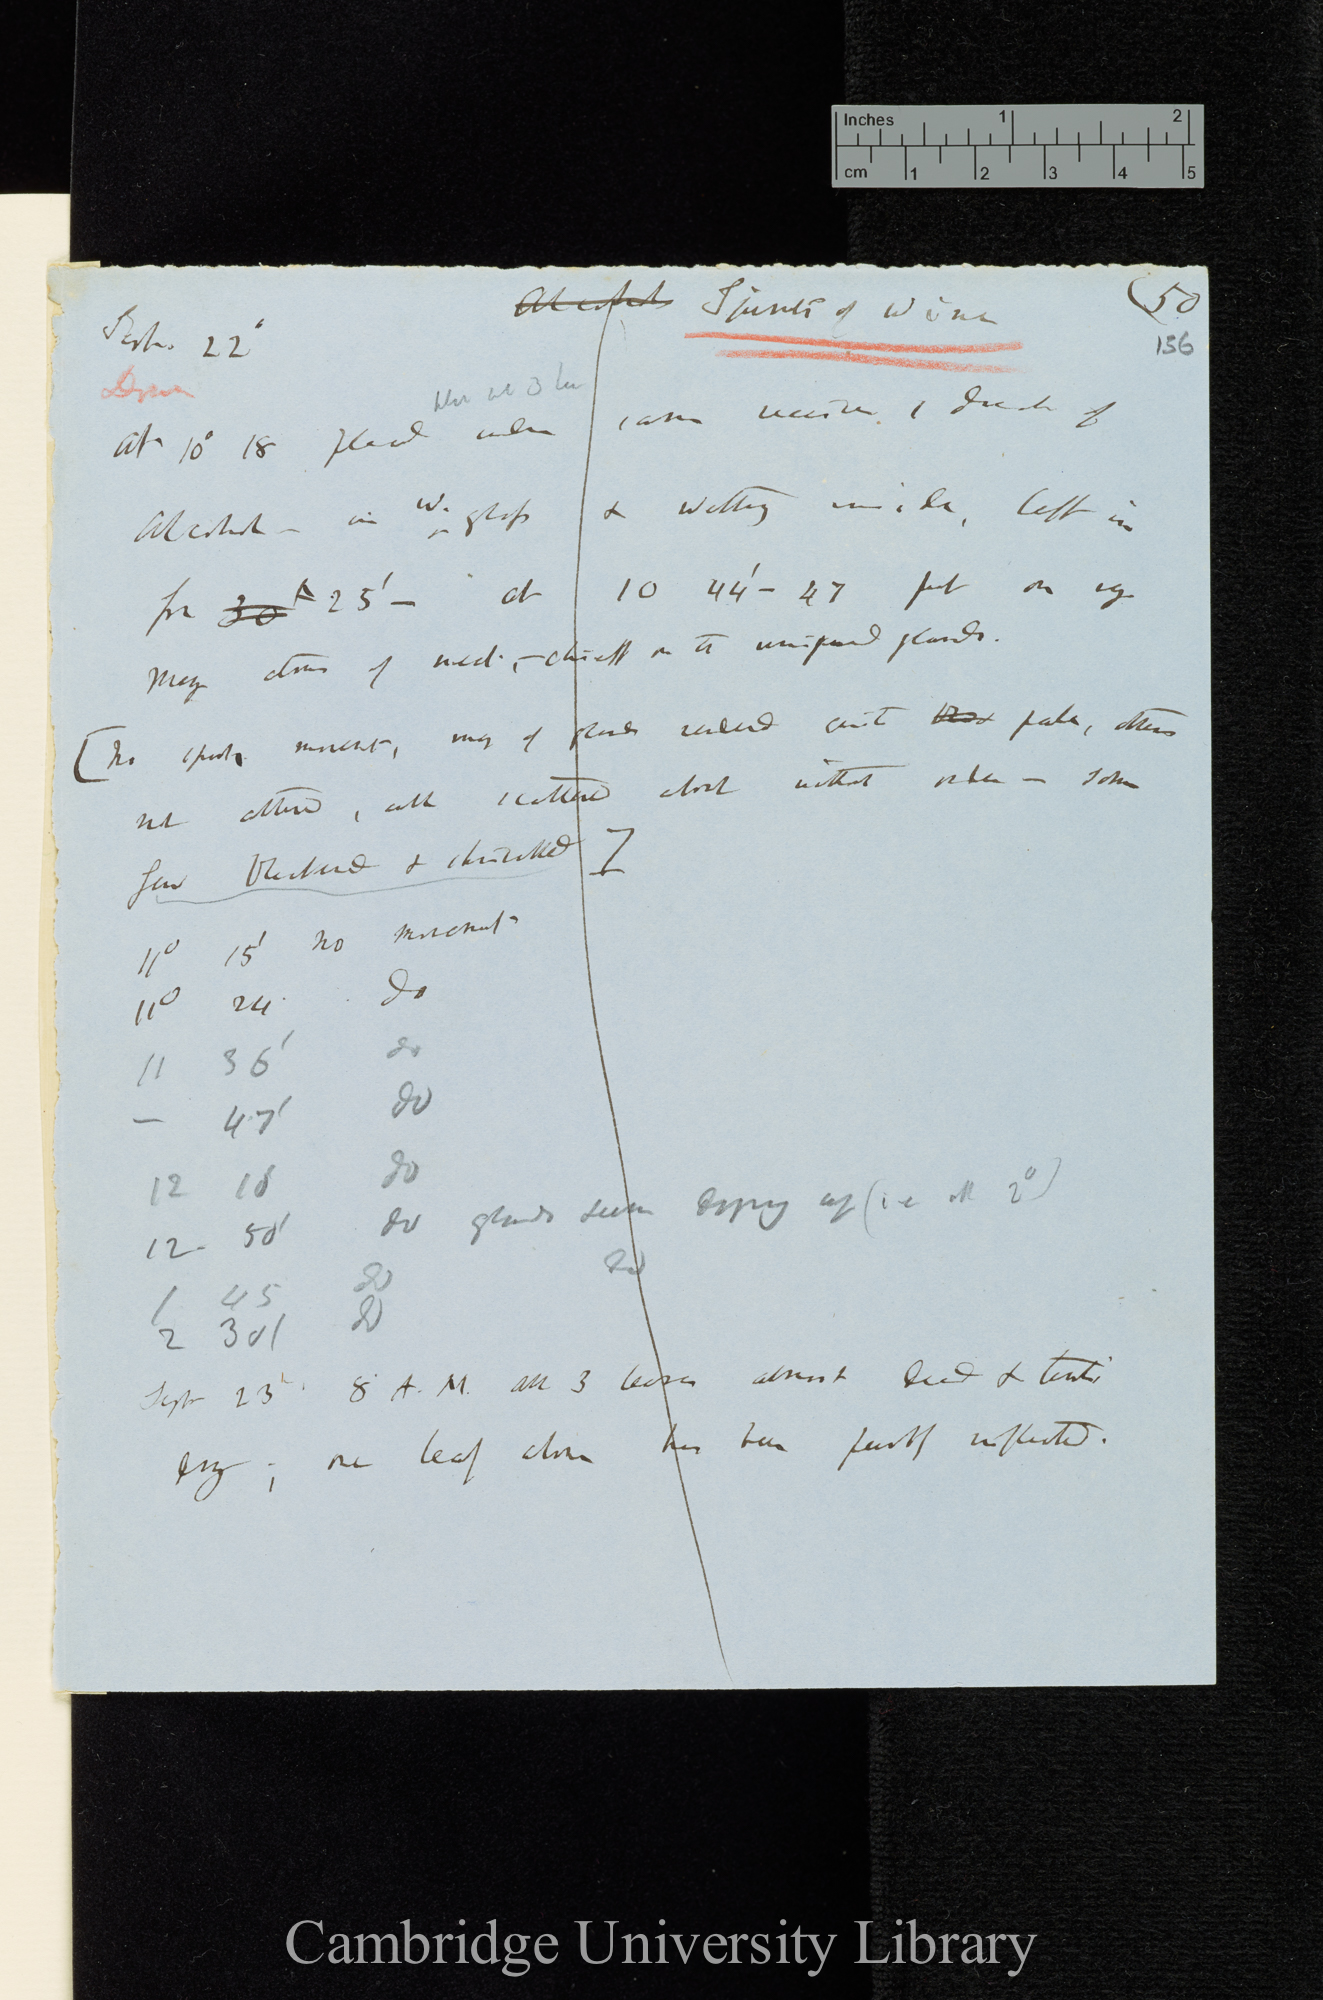 Inches 1 2
cm 1 2 3 4 5
(50
156
Alcohol Spirits of Wine
Sept. 22'
Drosera
At 10° 18 placed under same 1 drachm of
Alcohol – in W. glass & wetting inside, left in
for 30' 25' – at 10 44' – 47 put on
many atoms of meat, – chiefly on the glands.
[No movement, many of glands rendered quite pale, others
not altered, all scattered about without order – some
few blackened & shrivelled]
11° 15' no movement
11° 24 do
11 36' do
– 47' do
12 18 do
12 50' do glands seem drying up (i.e. all 2°)
1 45 do do
2 30' do
Sept 23' 8° A.M. all 3 leaves almost dead & tent.
dry; one leaf alone has been partly inflected.
Cambridge University Library